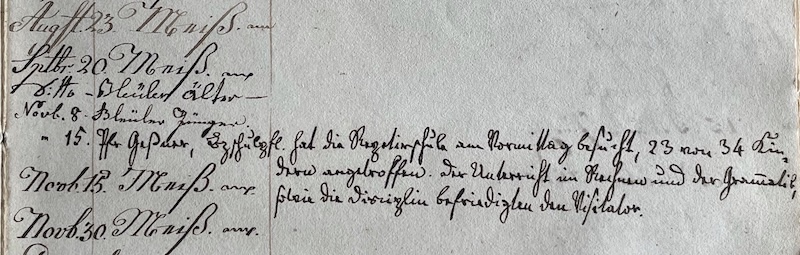 Augst. 23. Meiß. am
Sptbr. 20. Meiß.
ditto – Bleuler älter –
Novb. 8. Bleuler Jünger.
" 15. Pfr Geßner, Bzschulpfl. hat die Repetirschule am Vormittag besucht, 23 von 34 Kin-
dern angetroffen. Der Unterricht im Rechnen und der Grammatik,
Novb. 15. Meiß.
sowie die Disciplin befriedigten den Visitator.
Novb. 30. Meiß.